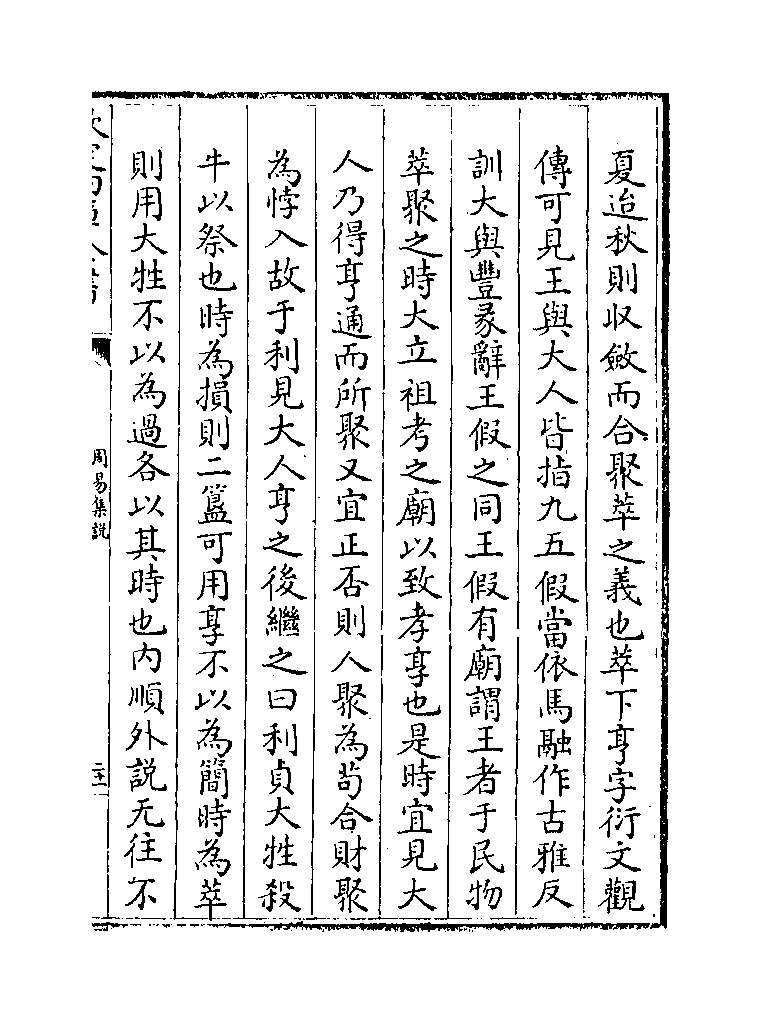 夏迨秋則收斂而合聚萃之義也萃下亨字衍文觀
傳可見王與大人皆指九五假當依馬融作古雅反
訓大與豐彖辭王假之同王假有廟謂王者于民物
萃聚之時大立祖考之廟以致孝享也是時宜見大
人乃得亨通而所聚又宜正否則人聚為茍合財聚
為悖入故于利見大人亨之後繼之曰利貞大牲殺
牛以祭也時為損則二簋可用享不以為簡時為萃
則用大牲不以為過各以其時也内順外説无往不
欽定四庫全書
周易集説